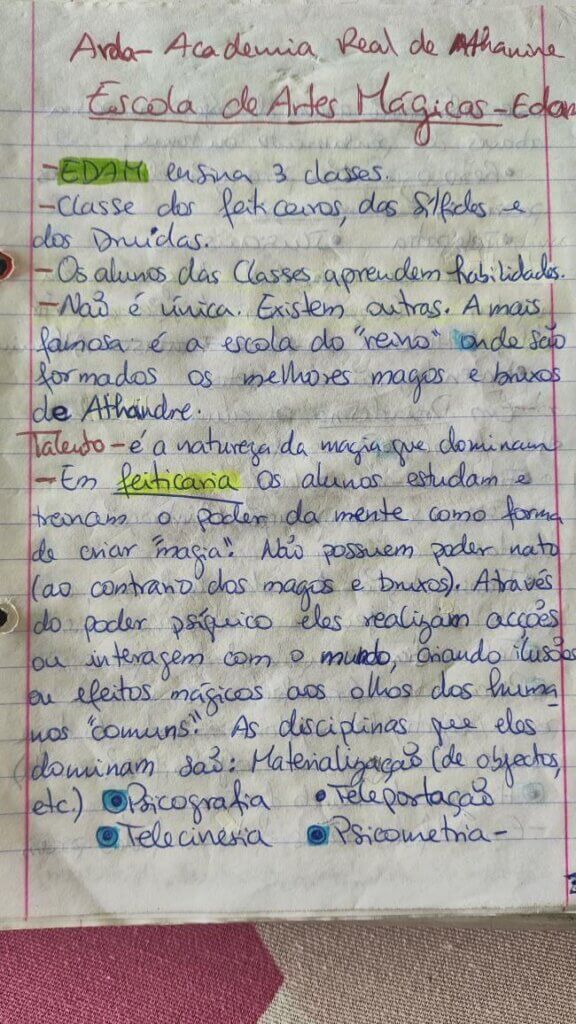 Arda- Academia Real de Athanine
Escola de Artes Mágicas-Edam
-EDAM ensina 3 classes.
-Classe dos feiticeiros, das Sílfides e
dos Druídas.
-Os alunos das Classes aprendem habilidades.
-Não é única. Existem outras. A mais
famosa é a escola do "reino" onde são
formados os melhores magos e bruxos
de Athandre.
Talento-é a natureza da magia que dominam
-Em feiticaria os alunos estudam e
treinam o poder da mente como forma
de criar "magia". Não possuem poder nato
(ao contrario dos magos e bruxos). Através
do poder psíquico eles realizam acções
ou interagem com o mundo, criando ilusões
ou efeitos mágicos aos olhos dos huma-
nos "comuns". As disciplinas que eles
dominam são: Materialização (de objectos,
etc) •Psicografia •Teleportação
•Telecinésia •Psicometria-